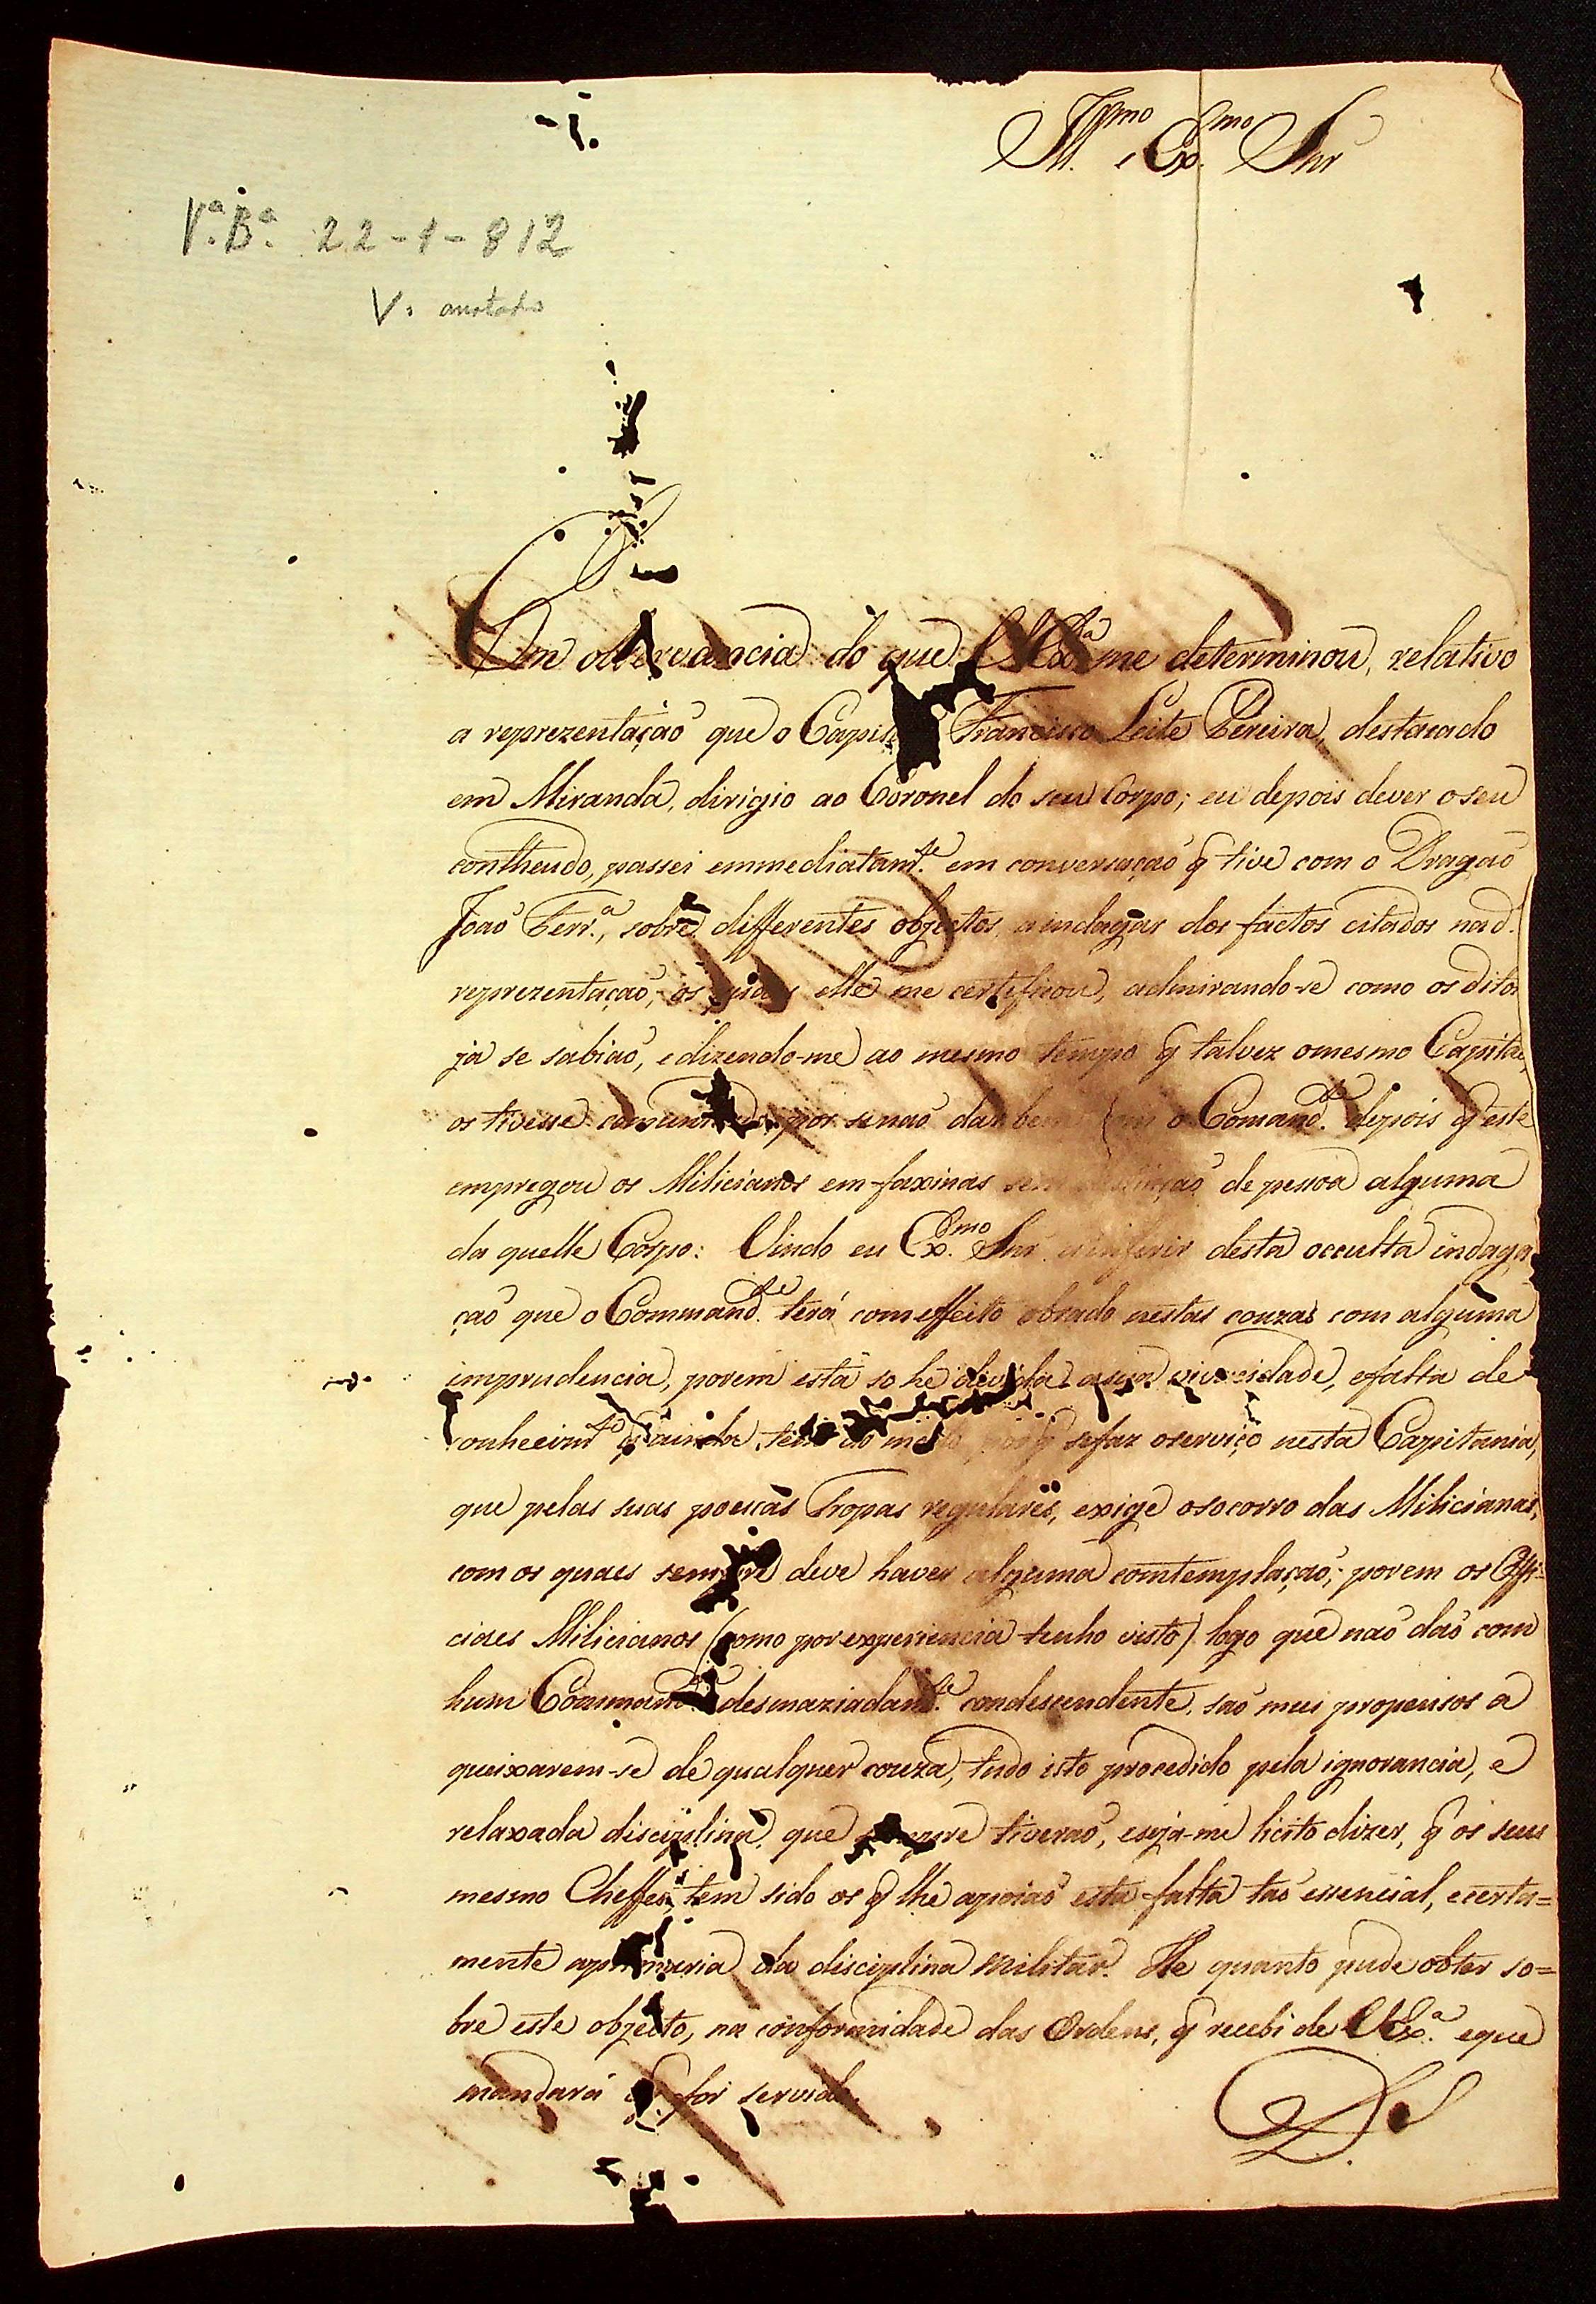 Ill.mo e Ex.mo Snr
V.a B.a 22-1-812
V. anotado
Em observancia do que V Ex.a me determinou, relativo
a reprezentação que o Capitão Francisco Leite Pereira, destacado
em Miranda, dirigio ao Coronel do seu Corpo; eu depois dever o seu
contheudo, passei emmediatam.te em conversação q tive com o Dragão
João Ferr.a, sobre differentes objectos, a indagar dos factos citados na d.
reprezentação; os quaes elle me certificou, admirando-se como os ditos
já se sabião, e dizendo-me ao mesmo tempo q talvez o mesmo Capitão
os tivesse por se não dar bem com o Comand.te depois q este
empregou os Milicianos em faxinas sem de pessoa alguma
da quelle Corpo: Vindo eu Ex.mo Snr a inferir desta occulta indaga
ção que o Command.te terá com effeito obrado nestas couzas com alguma
imprudencia, porem esta so he devida a sua vivacidade, e falta de
conhecim.to q ainda tem do modo por q se faz o serviço nesta Capitania,
que pelas suas poucas Tropas regulares, exige o socorro das Milicianas,
com os quaes sempre deve haver alguma comtemplação; porem os Offi-
ciaes Milicianos (como por experiencia tenho visto) logo que não dão com
hum Command.te desmaziadam.te condescendente, são mui propensos a
queixarem-se de qualquer couza, tudo isto procedido pela ignorancia, e
relaxada disciplina, que sempre tiverão, e seja-me licito dizer, q os seus
mesmo Cheffes tem sido os q lhe apoião esta falta tão essencial, e certa=
mente a primaria da disciplina Militar. He quanto pude obter so=
bre este objecto, na conformidade das Ordens, q recebi de V Ex.a e que
mandará o q for servido.
D.s